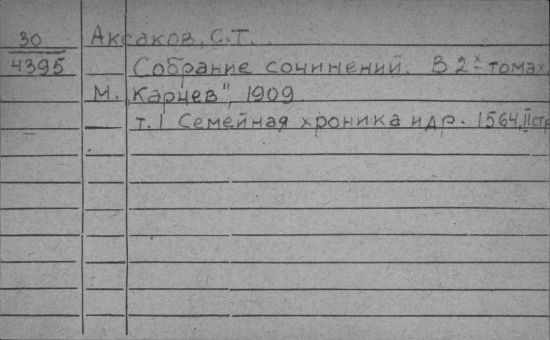 30 Аксаков, С.Т.
4395 Собрание сочинений. В 2х томах.
М. „Карцев", 1909
т. 1 Семейная хроника и др. 1564, II стр